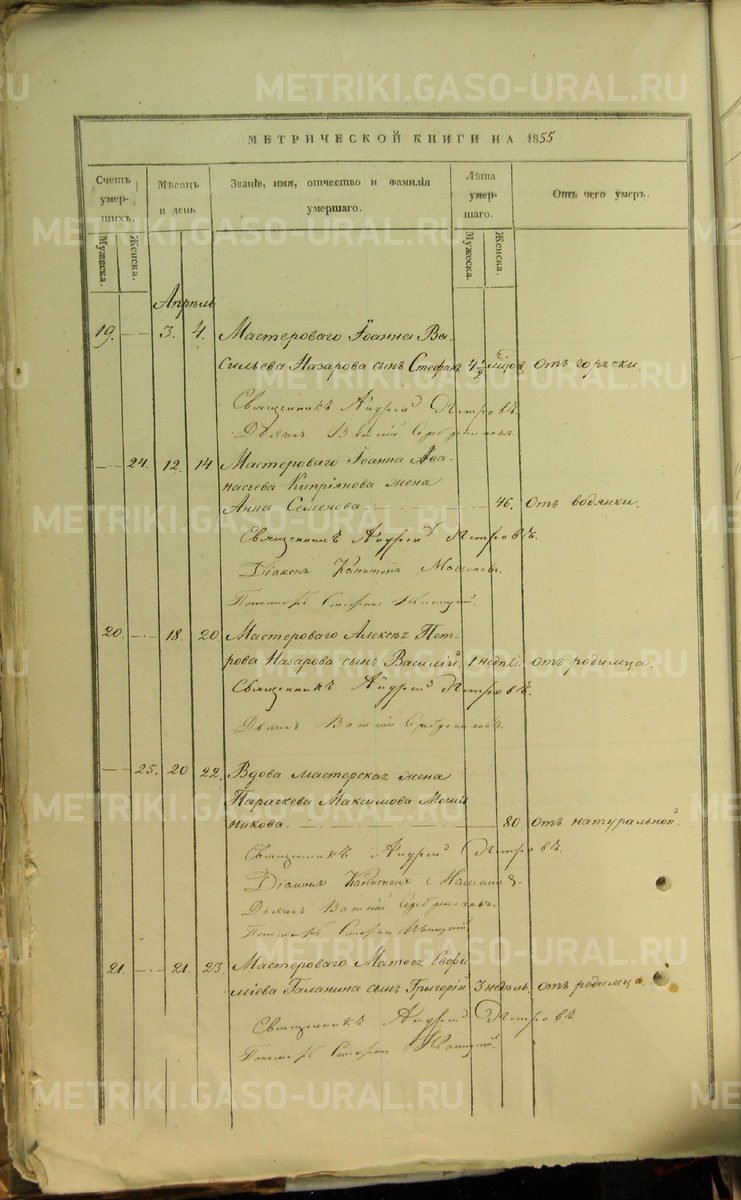 METRIKI.GASO-URAL.RU
МЕТРИЧЕСКОЙ КНИГИ НА 1855
Счетъ умер-шихъ. Мѣсяцъ и день Званіе, имя, отчество и фамилія умершаго. Лѣта умер-шаго. Отъ чего умеръ.
Мужеска. Женска. Мужеска. Женска.
Апрѣль
19. — 3. 4. Мастероваго Іоанна Ва-
сильева Назарова сынъ Стефанъ 4½ мѣсе отъ горячки.
Священникъ Андрей Петровъ.
Дьячекъ Василій
— 24. 12. 14 Мастероваго Іоанна Аѳа-
насьева Кипріянова жена
Анна Семенова. 46. отъ водянки.
Священникъ Андрей Петровъ.
Діаконъ Капитонъ
Пономарь Стефанъ
20. — 18. 20. Мастероваго Алексѣя Пет-
рова Назарова сынъ Василій. 1 недѣли. отъ родимца.
Священникъ Андрей Петровъ.
Дьячекъ Василій
— 25. 20 22. Вдова мастерская жена
Параскева Максимова
никова. 80. отъ натуральной.
Священникъ Андрей Петровъ.
Діаконъ Капитонъ
Дьячекъ Василій
Пономарь Стефанъ
21. — 21. 23. Мастероваго Матѳея Евѳи-
міева Галанина сынъ Григорій 3 недѣль. отъ родимца.
Священникъ Андрей Петровъ
Пономарь Стефанъ